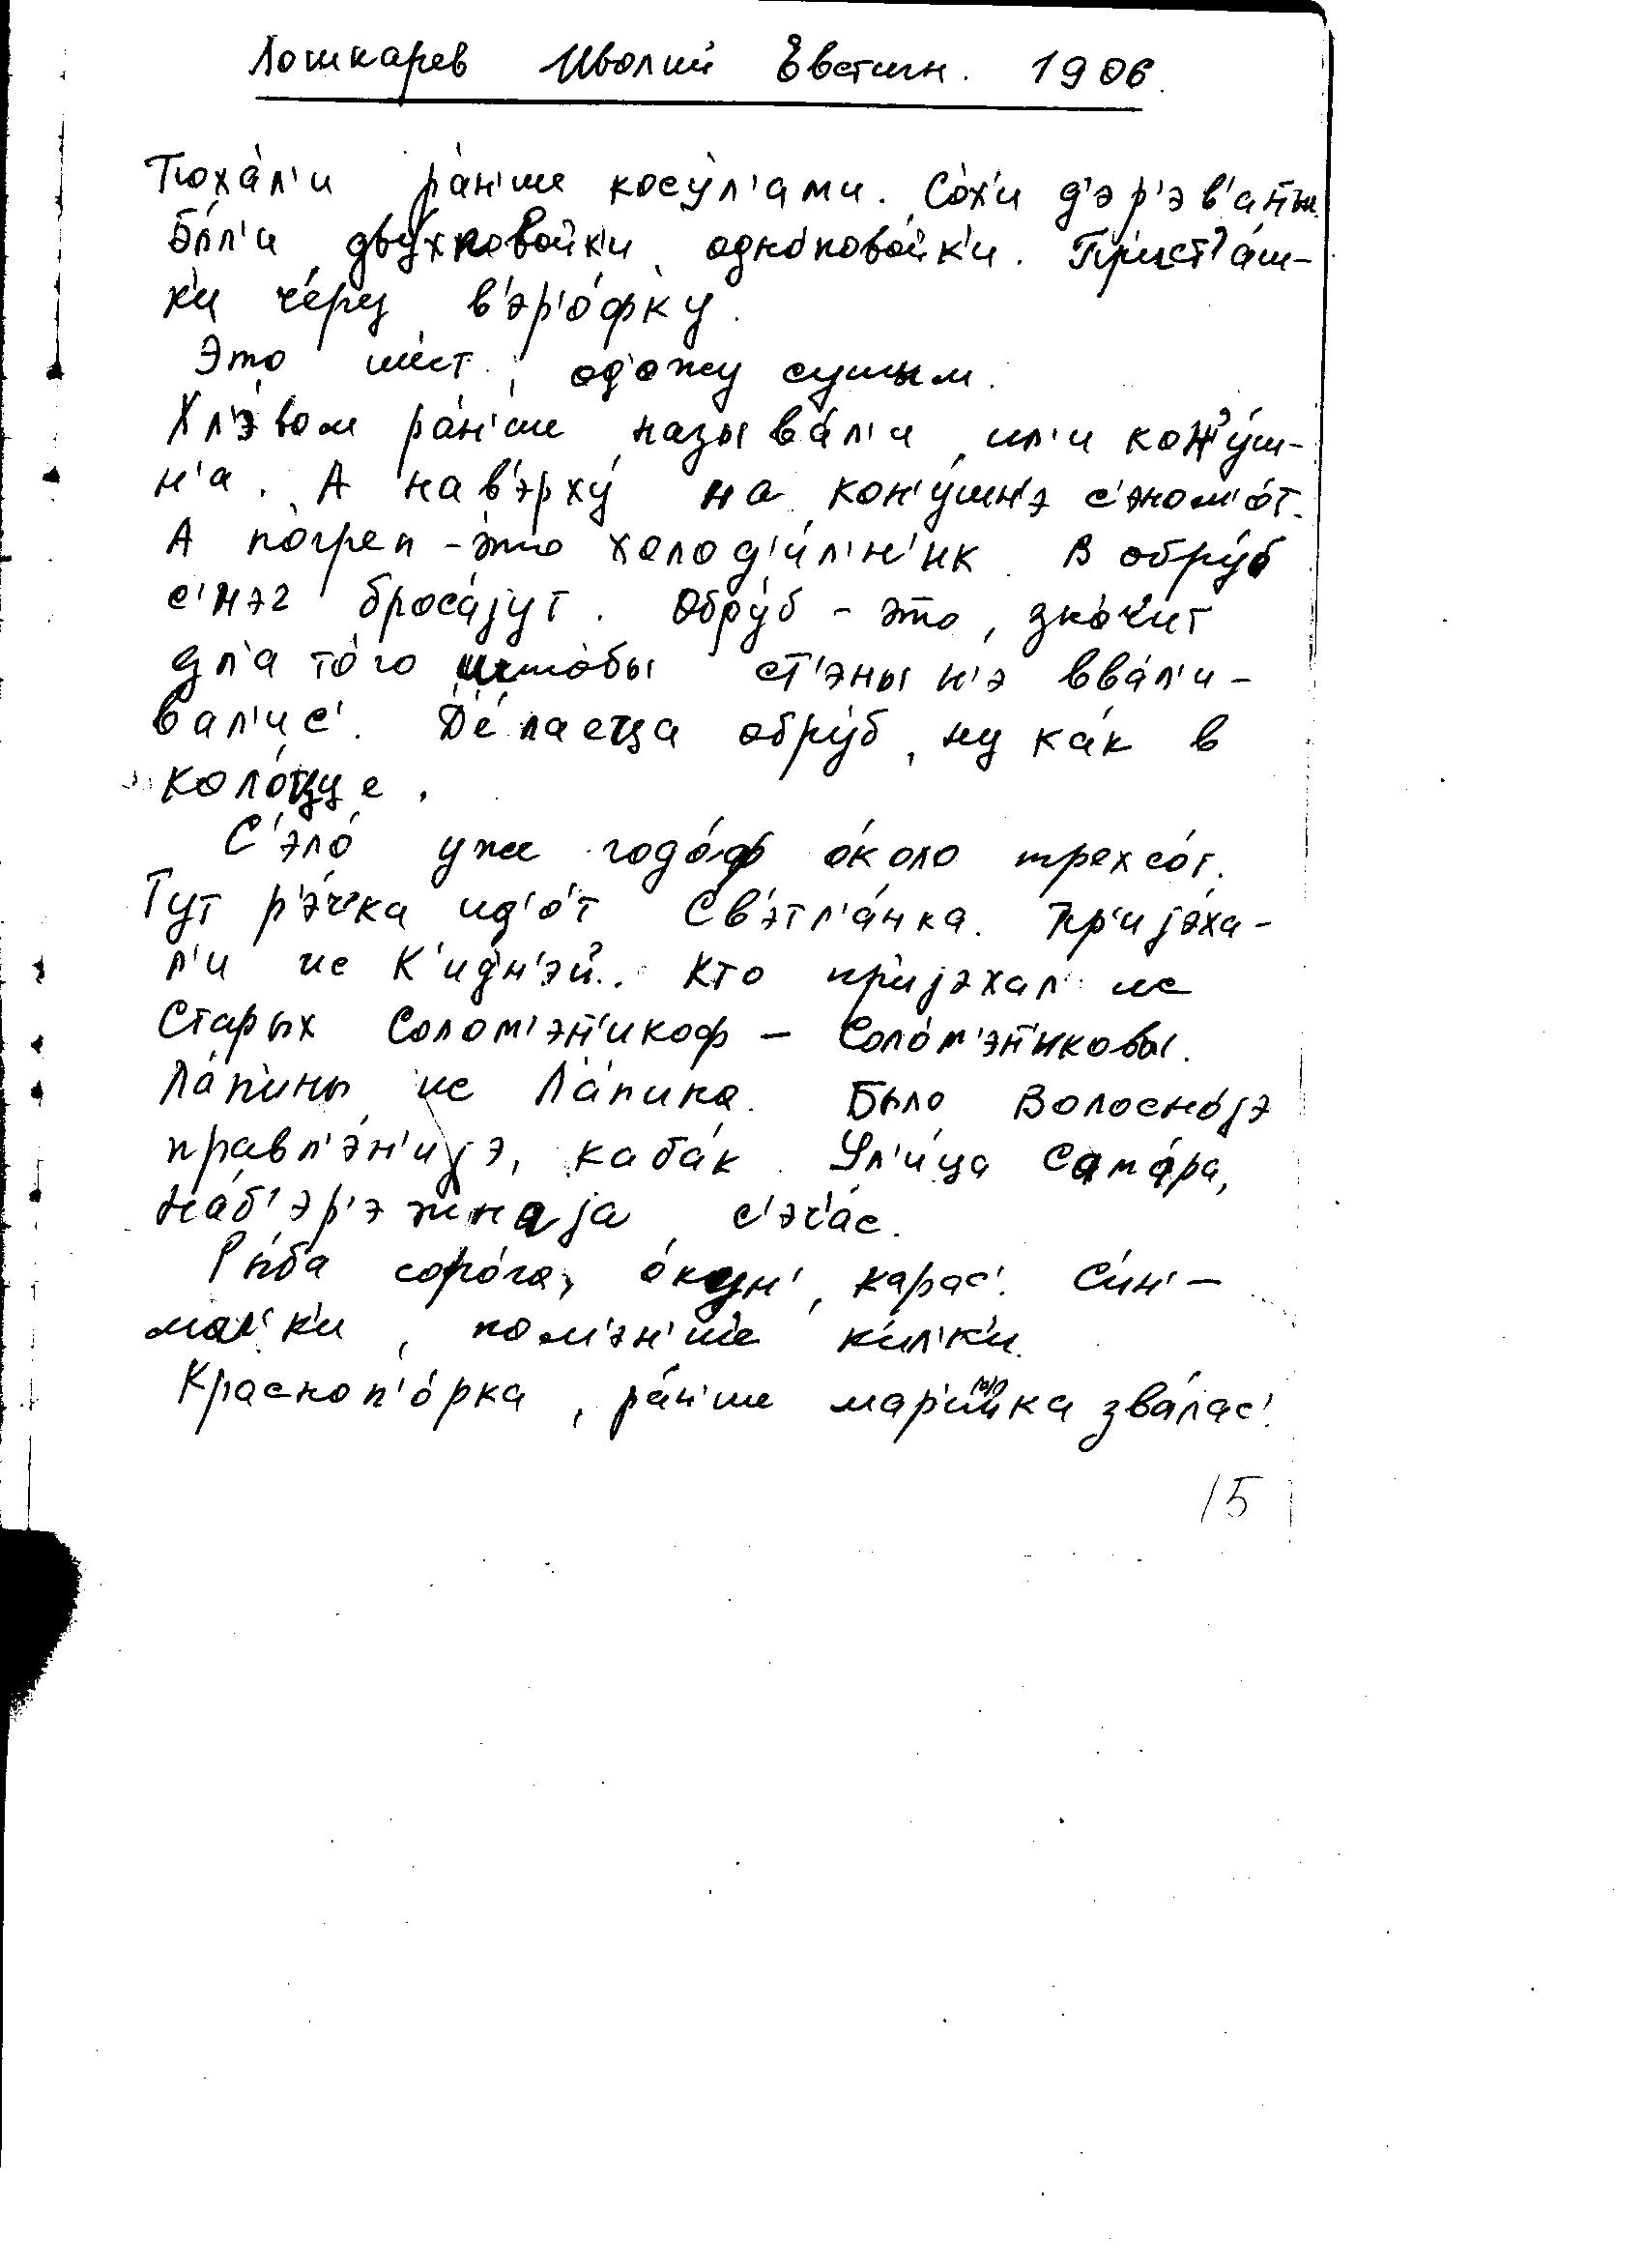 Лошкарев Иволий Евстигн. 1906.
Пюха́л'и ра́н'ше косу́л'ами. Со́х'и д'эр'эв'а́н̄ы
Бы́л'и двухповойк'и однопово́йк'и. Пр'ист'а́ш-
к'и че́рез в'эр'о́фку.
Это шест, од'ожу сушым.
Хл'э́вом ра́н'ше называ́л'и ил'и кон'у́ш-
н'а. А нав'эрху́ на кон'у́шн'э с'эном'о́т.
А по́греп - э́то холод'и́л'н'ик. В обру́б
с'нэг броса́jут. Обру́б - э́то, зна́чит
дл'а то́го што́бы ст'эны н'э ввал'и-
вал'ис'. Де́лаеца обру́б, ну ка́к в
коло́цце.
С'эло́ уже годо́ф о́коло трехсо́т.
Тут р'э́чка ид'о́т Св'этл'а́нка. Пр'иjэ́ха-
л'и ис К'идн'эй. Кто пр'иjэхал ис
Старых Солом'эн̄'икоф - Соло́м'эн̄'иковы.
Ла́пины ис Ла́пина. Было Волосно́jэ
правл'э́н'иjэ, каба́к. Ул'и́ца Сама́ра,
На́б'эр'эжнаjа с'эч'а́с.
Ры́ба соро́га, о́кун', карас'. Си́н'-
мал'к'и, пом'эн'ше к'ил'к'и.
Красноп'о́рка, ра́н'ше мар'и́шка звала́с'.
15